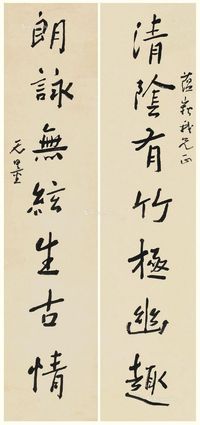 清陰有竹極幽趣
朗詠無絃生古情